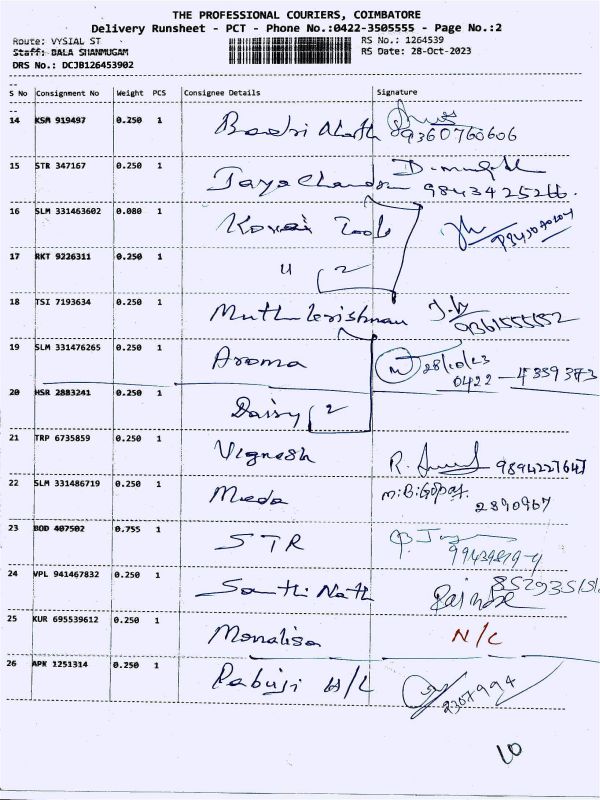 THE PROFESSIONAL COURIERS, COIMBATORE
Delivery Runsheet - PCT - Phone No.:0422-3505555 - Page No.:2
Route: VYSIAL ST RS No.: 1264539
Staff: BALA SHANMUGAM RS Date: 28-Oct-2023
DRS No.: DCJB126453902
S No Consignment No Weight PCS Consignee Details Signature
14 KSM 919497 0.250 1 9360760606
15 STR 347167 0.250 1 9843425266
16 SLM 331463602 0.080 1 Kovai Tools
17 RKT 9226311 0.250 1 " 2
18 TSI 7193634 0.250 1 Muthukrishnan 9361555552
19 SLM 331476265 0.250 1 Aroma 28/10/23
0422 - 4359373
20 HSR 2883241 0.250 1 Daisy 2
21 TRP 6735859 0.250 1 Vignesh R. 9894227647
22 SLM 331486719 0.250 1 Meeda M.B.Gopal
2890967
23 BOD 407502 0.755 1 STR
24 VPL 941467832 0.250 1 Santhi Nath
25 KUR 695539612 0.250 1 Monalisa N/C
26 APK 1251314 0.250 1 Pabuji H/L 2307994
10